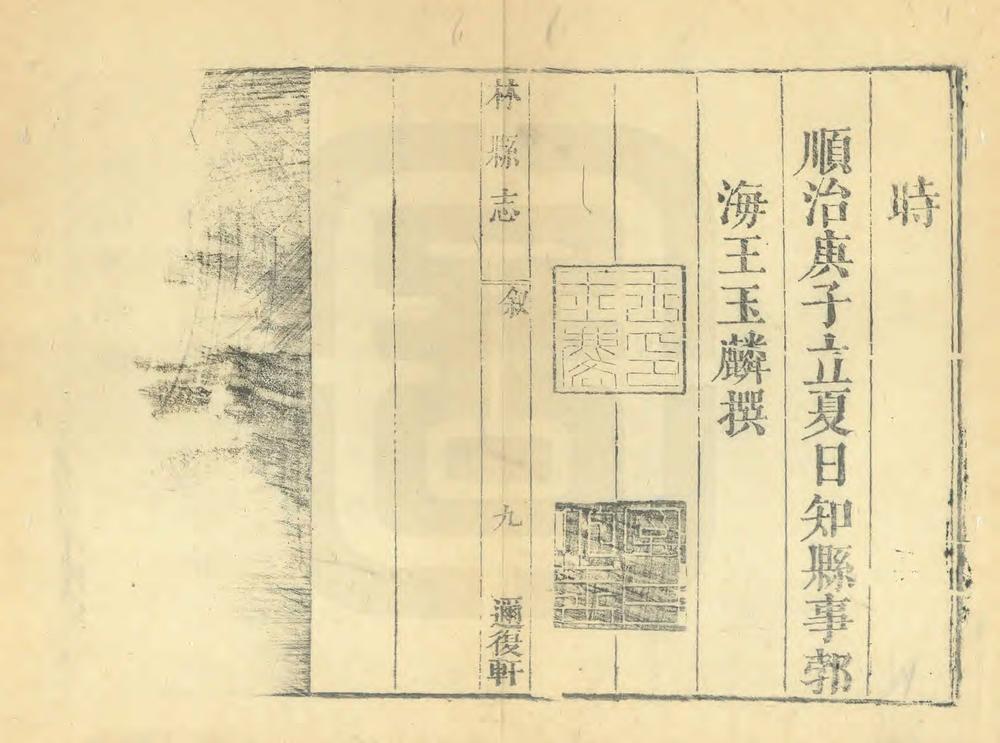 時
順治庚子立夏日知縣事郭
海王玉麟撰
林縣志
叙
九
邇復軒